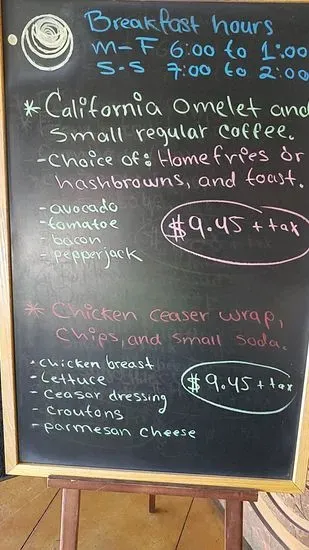 Breakfast hours
M-F 6:00 to 1:00
S-S 7:00 to 2:00
* California omelet and
small regular coffee.
- Choice of: Homefries or
hashbrowns, and toast.
- avocado
- tomatoe
- bacon
- pepperjack
$9.45 + tax
* Chicken ceaser wrap,
chips, and small soda.
- chicken breast
- Lettuce
- Ceasar dressing
- croutons
- parmesan cheese
$9.45 + tax